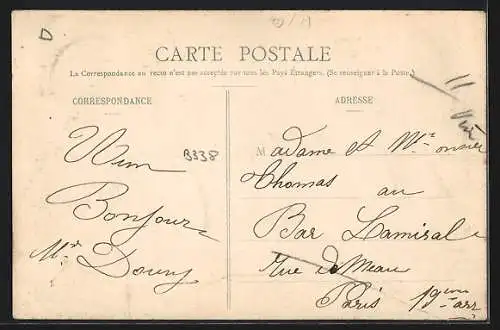 D
CARTE POSTALE
La Correspondance au recto n'est pas acceptée par tous les Pays Étrangers. (Se renseigner à la Poste.)
CORRESPONDANCE
ADRESSE
11
B338
Un
Bonjour
Mr Doury
Madame et Monsieur
Thomas au
Bar Lamiral
Rue de Meau
Paris 19eme arr